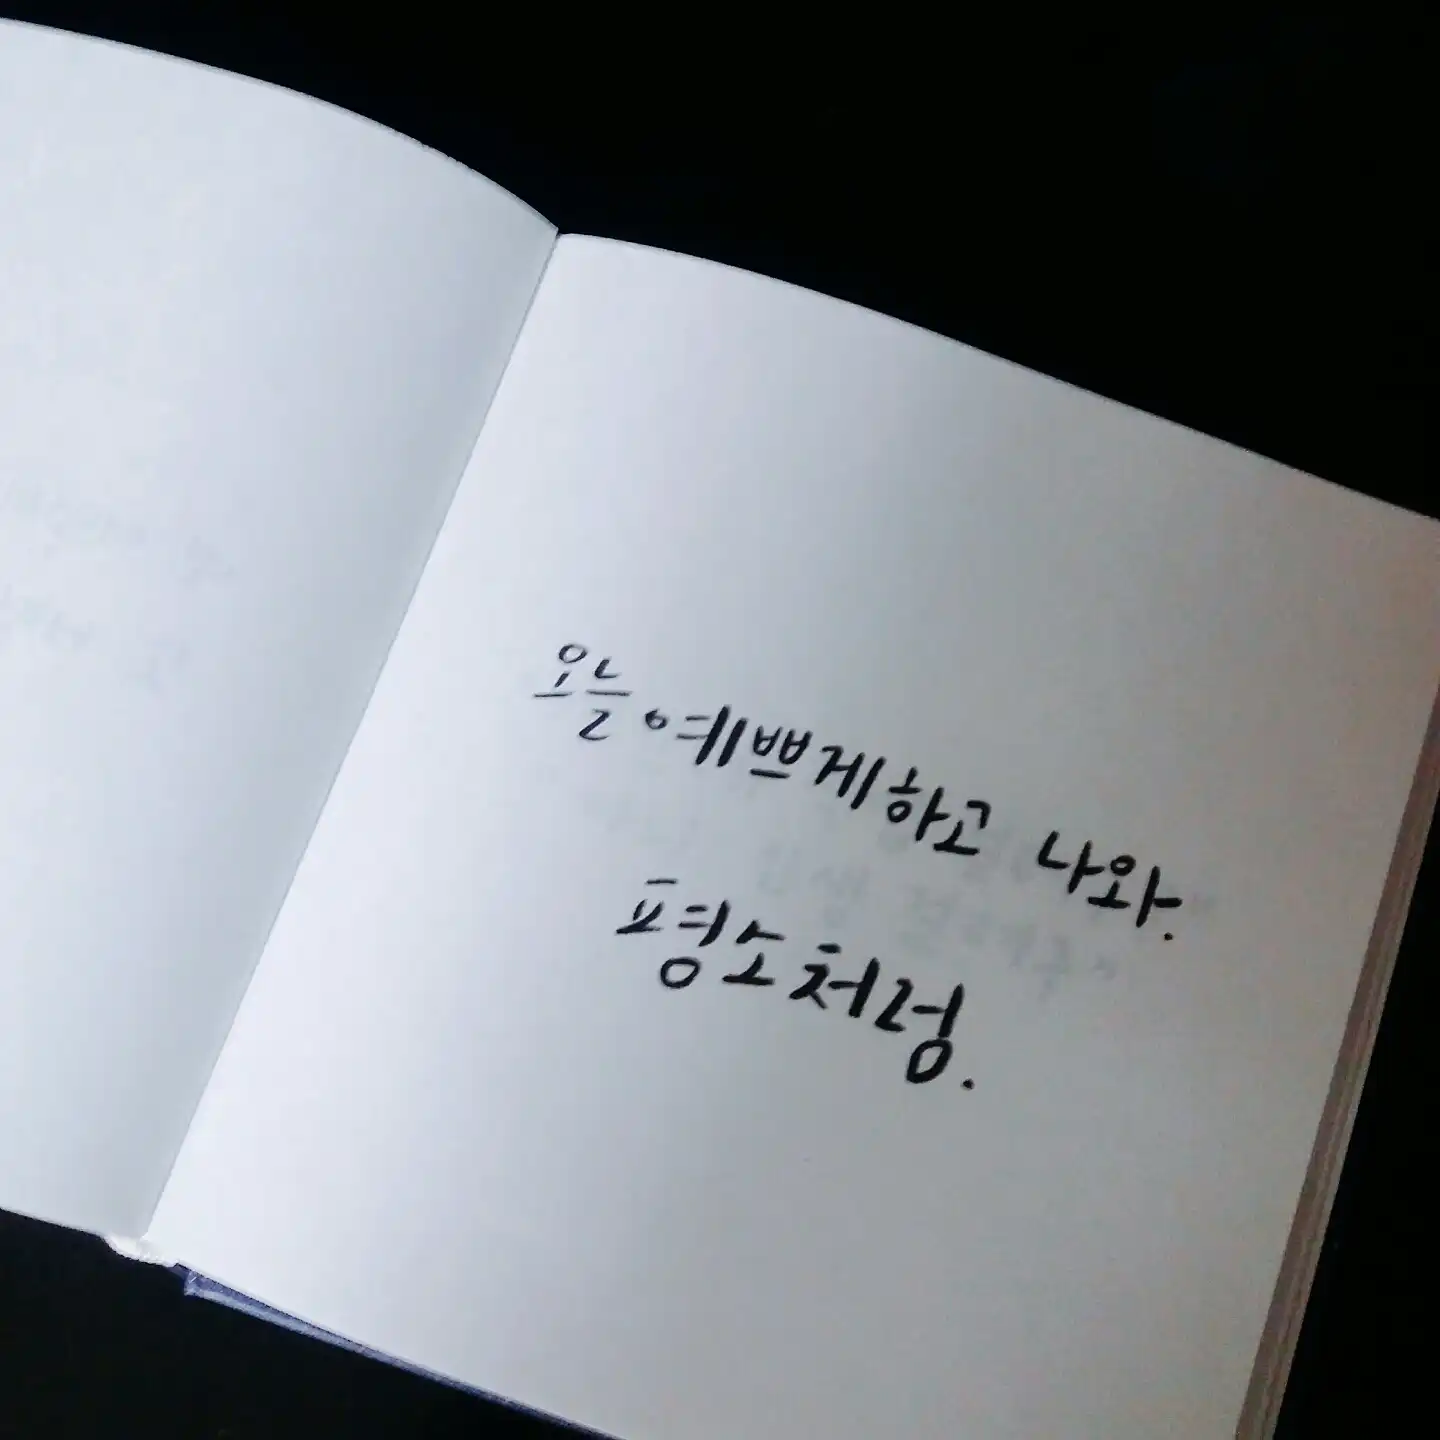 오늘 예쁘게하고 나와.
평소처럼.